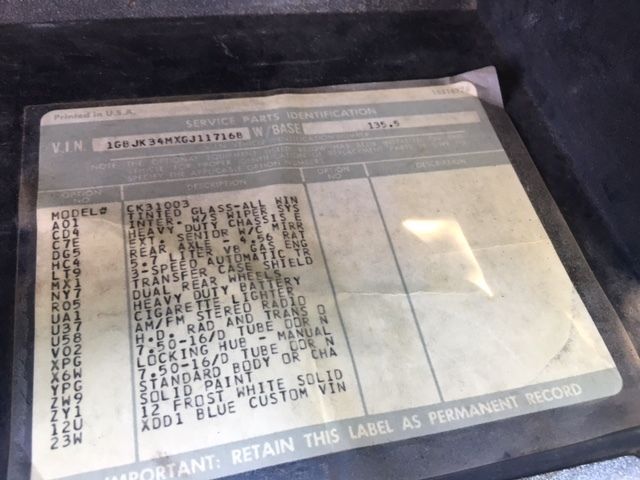 Printed in U.S.A.
SERVICE PARTS IDENTIFICATION
V.I.N. 1GBJK34MXGJ117168 W/BASE 135.5
OPTION NO. DESCRIPTION OPTION NO. DESCRIPTION
MODEL# CK31003
A01 TINTED GLASS-ALL WIN
CD4 INTER. W/S WIPER SYS
C7E HEAVY DUTY CHASSISE
DG5 EXT. SENIOR W/C MIRR
HC4 REAR AXLE - 4.56 RAT
LT9 5.7 LITER V8 GAS ENG
MX1 3-SPEED AUTOMATIC TR
NY7 TRANSFER CASE SHIELD
R05 DUAL REAR WHEELS
UA1 HEAVY DUTY BATTERY
U37 CIGARETTE LIGHTER
U58 AM/FM STEREO RADIO
V02 H.D. RAD AND TRANS O
XPG 7.50-16/D TUBE OOR N
X6W LOCKING HUB - MANUAL
YPG 7.50-16/D TUBE OOR N
YW9 STANDARD BODY OR CHA
7Y1 SOLID PAINT
12U 12 FROST WHITE SOLID
23W XDD1 BLUE CUSTOM VIN
IMPORTANT: RETAIN THIS LABEL AS PERMANENT RECORD